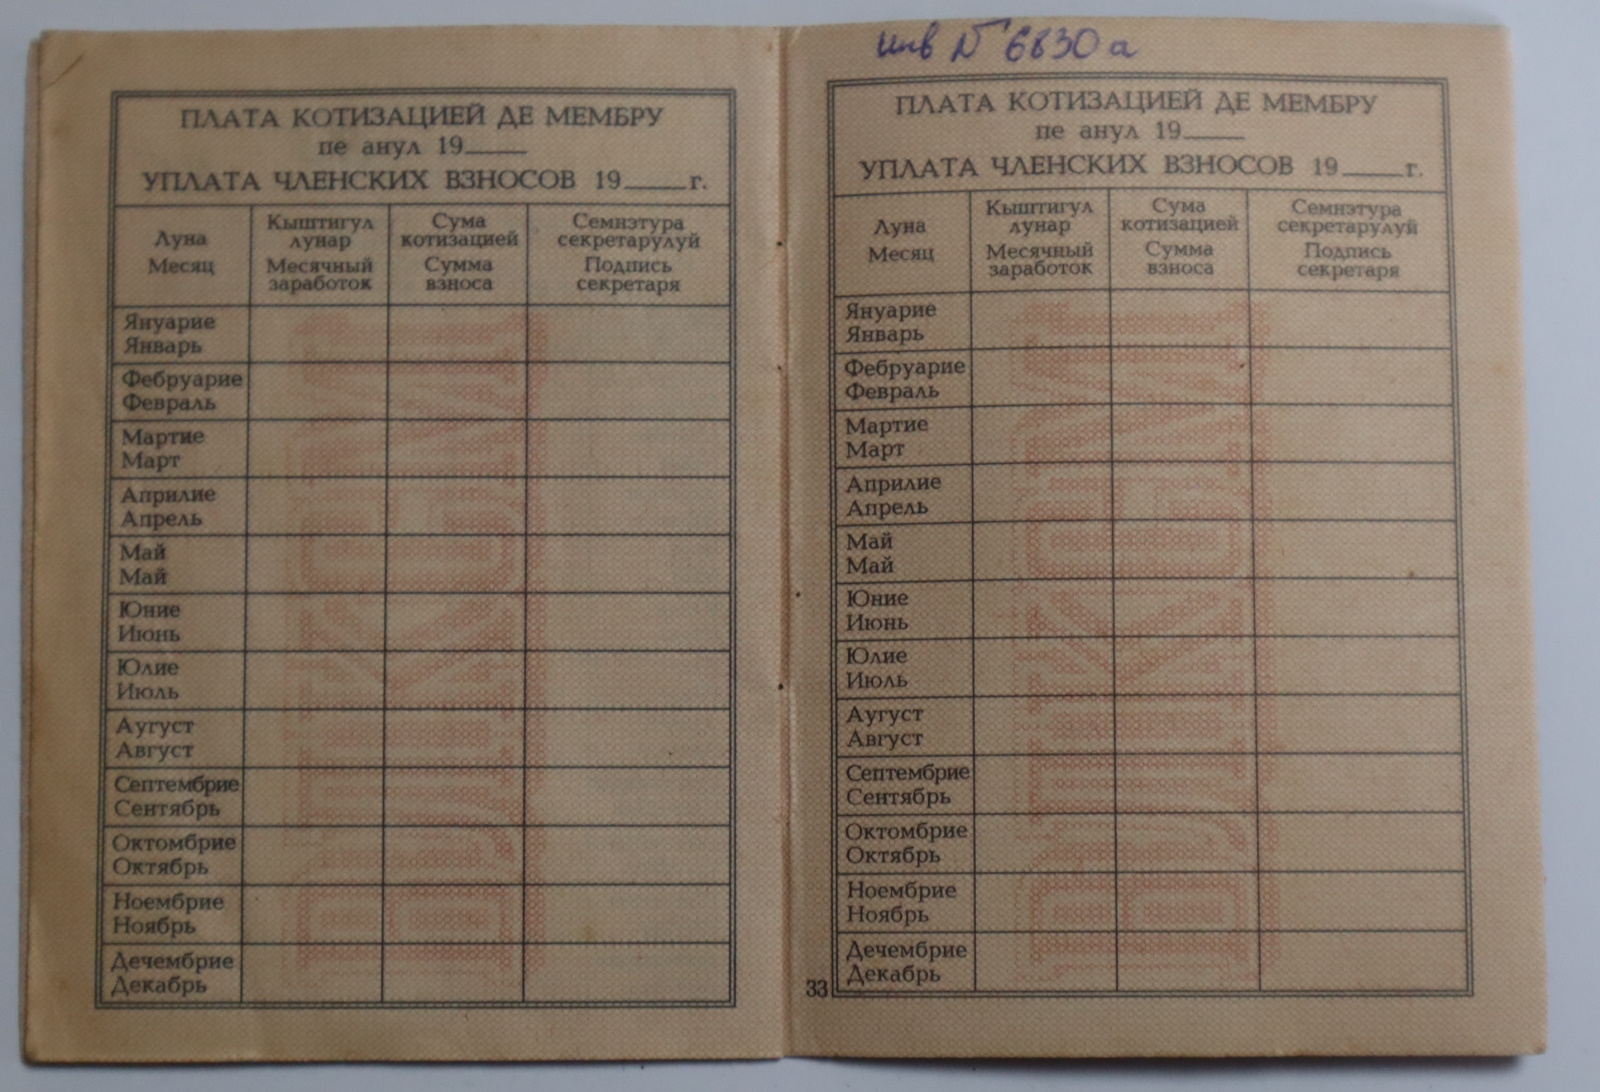 ПЛАТА КОТИЗАЦИЕЙ ДЕ МЕМБРУ
пе анул 19____
УПЛАТА ЧЛЕНСКИХ ВЗНОСОВ 19____г.
Луна
Месяц
Кыштигул
лунар
Месячный
заработок
Сума
котизацией
Сумма
взноса
Семнэтура
секретарулуй
Подпись
секретаря
Януарие
Январь
Фебруарие
Февраль
Мартие
Март
Априлие
Апрель
Май
Май
Юние
Июнь
Юлие
Июль
Аугуст
Август
Септембрие
Сентябрь
Октомбрие
Октябрь
Ноембрие
Ноябрь
Дечембрие
Декабрь
ВЛКСМ
инв № 6830а
ПЛАТА КОТИЗАЦИЕЙ ДЕ МЕМБРУ
пе анул 19____
УПЛАТА ЧЛЕНСКИХ ВЗНОСОВ 19____г.
Луна
Месяц
Кыштигул
лунар
Месячный
заработок
Сума
котизацией
Сумма
взноса
Семнэтура
секретарулуй
Подпись
секретаря
Януарие
Январь
Фебруарие
Февраль
Мартие
Март
Априлие
Апрель
Май
Май
Юние
Июнь
Юлие
Июль
Аугуст
Август
Септембрие
Сентябрь
Октомбрие
Октябрь
Ноембрие
Ноябрь
Дечембрие
Декабрь
ВЛКСМ
33